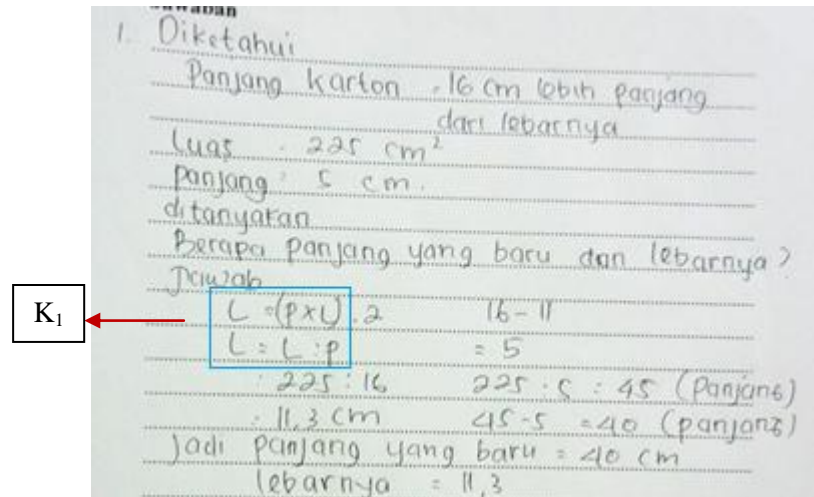 Jawaban
1. Diketahui
Panjang karton : 16 cm lebih panjang
dari lebarnya
Luas : 225 cm²
Panjang : 5 cm.
ditanyakan
Berapa panjang yang baru dan lebarnya?
Jawab
K₁
L = (p x L) . 2 16 - 11
L = L : p = 5
: 225 : 16 225 : 5 : 45 (Panjang)
: 11,3 cm 45 - 5 = 40 (panjang)
Jadi panjang yang baru = 40 cm
lebarnya = 11,3